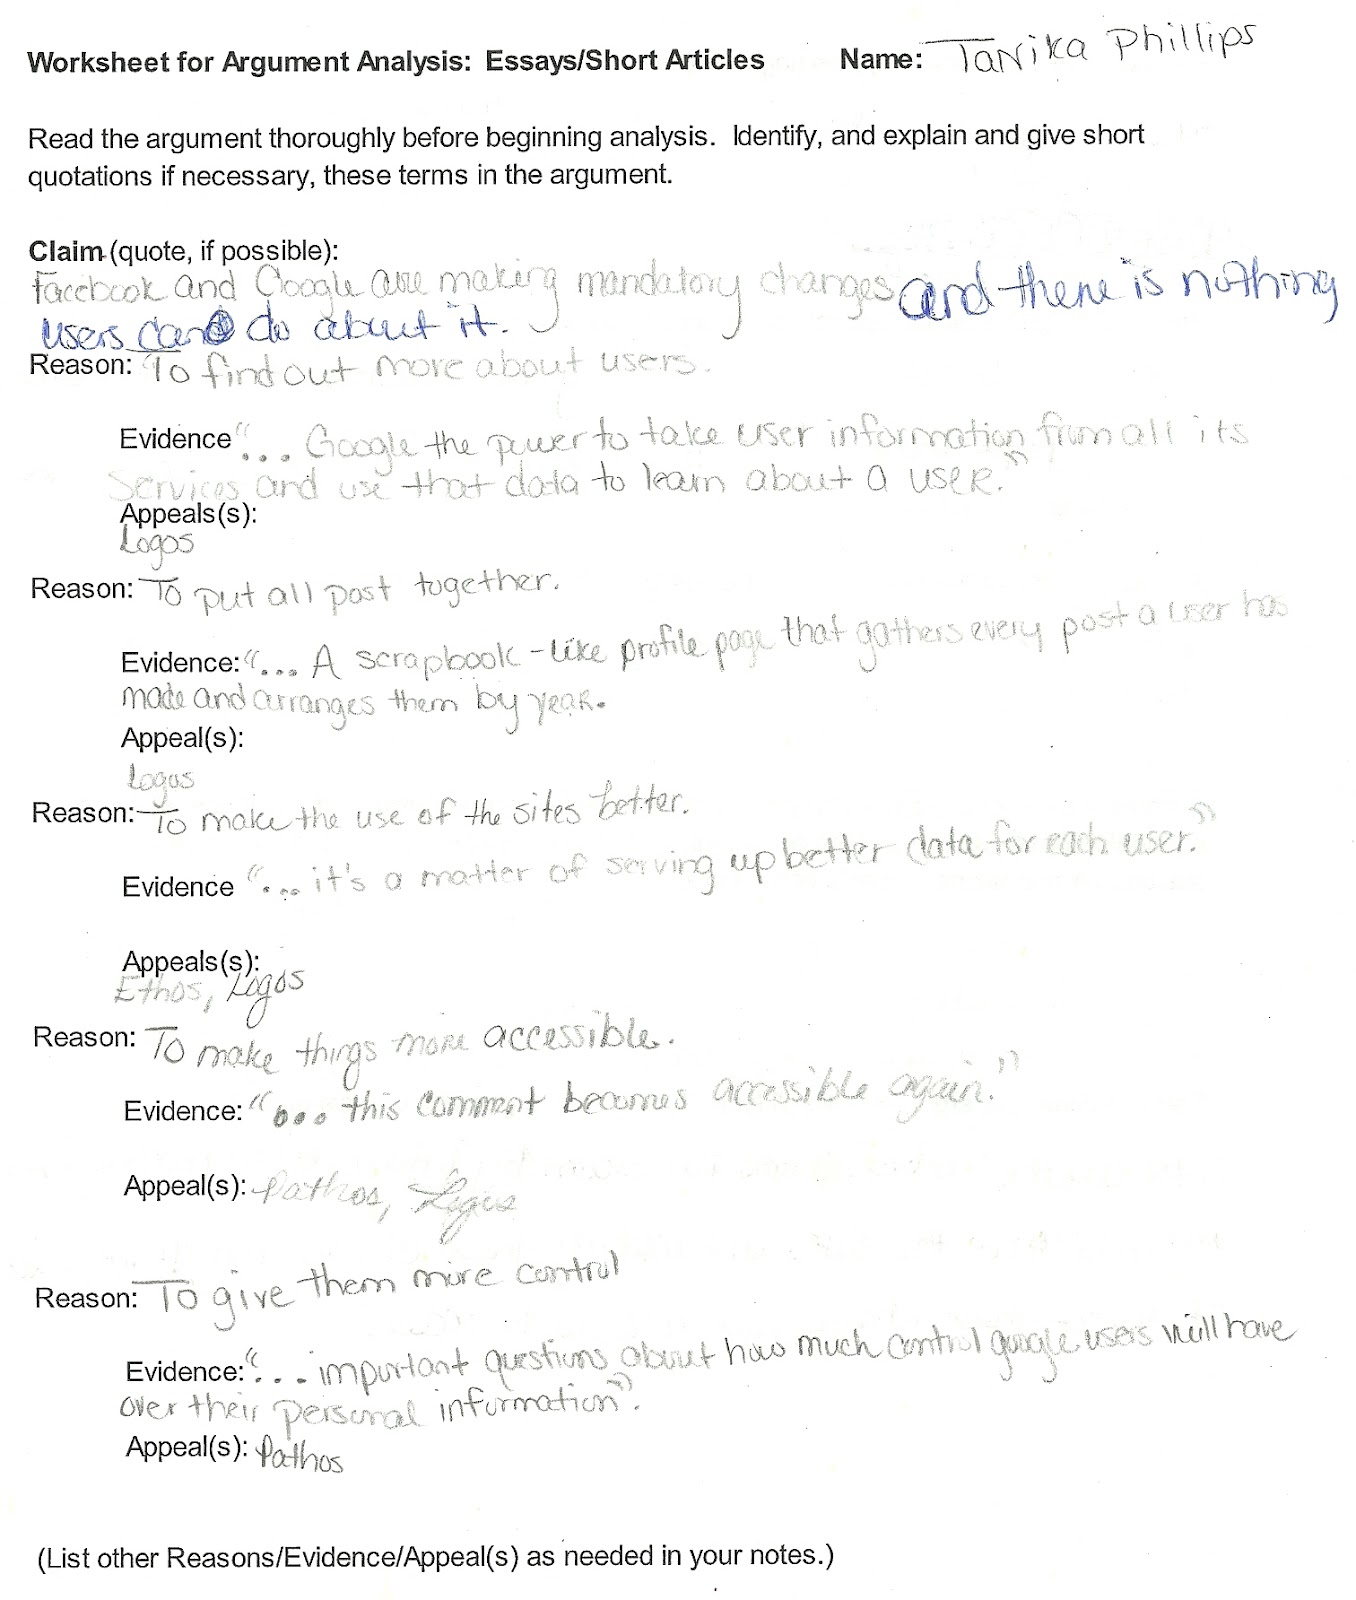 Worksheet for Argument Analysis: Essays/Short Articles Name: Tanika Phillips
Read the argument thoroughly before beginning analysis. Identify, and explain and give short
quotations if necessary, these terms in the argument.
Claim (quote, if possible):
Facebook and Google are making mandatory changes and there is nothing
users can do about it.
Reason: To find out more about users.
Evidence "... Google the power to take user information from all its
services and use that data to learn about a user."
Appeals(s):
Logos
Reason: To put all post together.
Evidence: "... A scrapbook-like profile page that gathers every post a user has
made and arranges them by year.
Appeal(s):
Logos
Reason: To make the use of the sites better.
Evidence "... it's a matter of serving up better data for each user."
Appeals(s):
Ethos, Logos
Reason: To make things more accessible.
Evidence: "... this comment becomes accessible again."
Appeal(s): Pathos, Logos
Reason: To give them more control
Evidence: "... important questions about how much control google users will have
over their personal information".
Appeal(s): Pathos
(List other Reasons/Evidence/Appeal(s) as needed in your notes.)